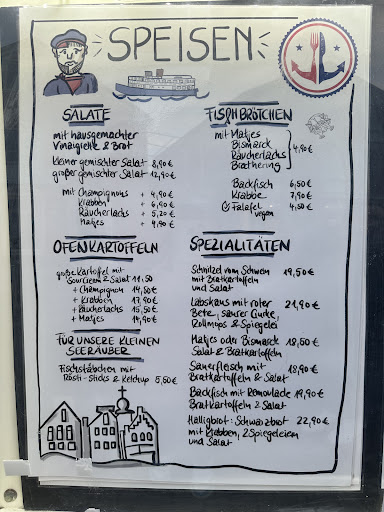 SPEISEN
SALATE
mit hausgemachter
Vinaigrette & Brot
kleiner gemischter Salat 8,90€
großer gemischter Salat 12,90€
mit Champignons + 4,90€
Krabben + 6,90€
Räucherlachs + 5,20€
Matjes + 4,90€
OFENKARTOFFELN
große Kartoffel mit
Sourcream & Salat 11,50
+ Champignon 14,50€
+ Krabben 17,90€
+ Räucherlachs 15,50€
+ Matjes 14,90€
FÜR UNSERE KLEINEN
SEERÄUBER
Fischstäbchen mit
Rösti-Sticks & Ketchup 5,50€
FISCHBRÖTCHEN
mit Matjes
Bismarck
Räucherlachs
Brathering
4,90€
Backfisch 6,50€
Krabbe 7,90€
Falafel 4,50€
vegan
SPEZIALITÄTEN
Schnitzel vom Schwein 19,50€
mit Bratkartoffeln
und Salat
Labskaus mit roter 21,90€
Bete, saurer Gurke,
Rollmops & Spiegelei
Matjes oder Bismarck 18,50€
Salat & Bratkartoffeln
Sauerfleisch mit 18,90€
Bratkartoffeln & Salat
Backfisch mit Remoulade 19,90€
Bratkartoffeln & Salat
Halligbrot: Schwarzbrot 22,90€
mit Krabben, 2 Spiegeleiern
und Salat